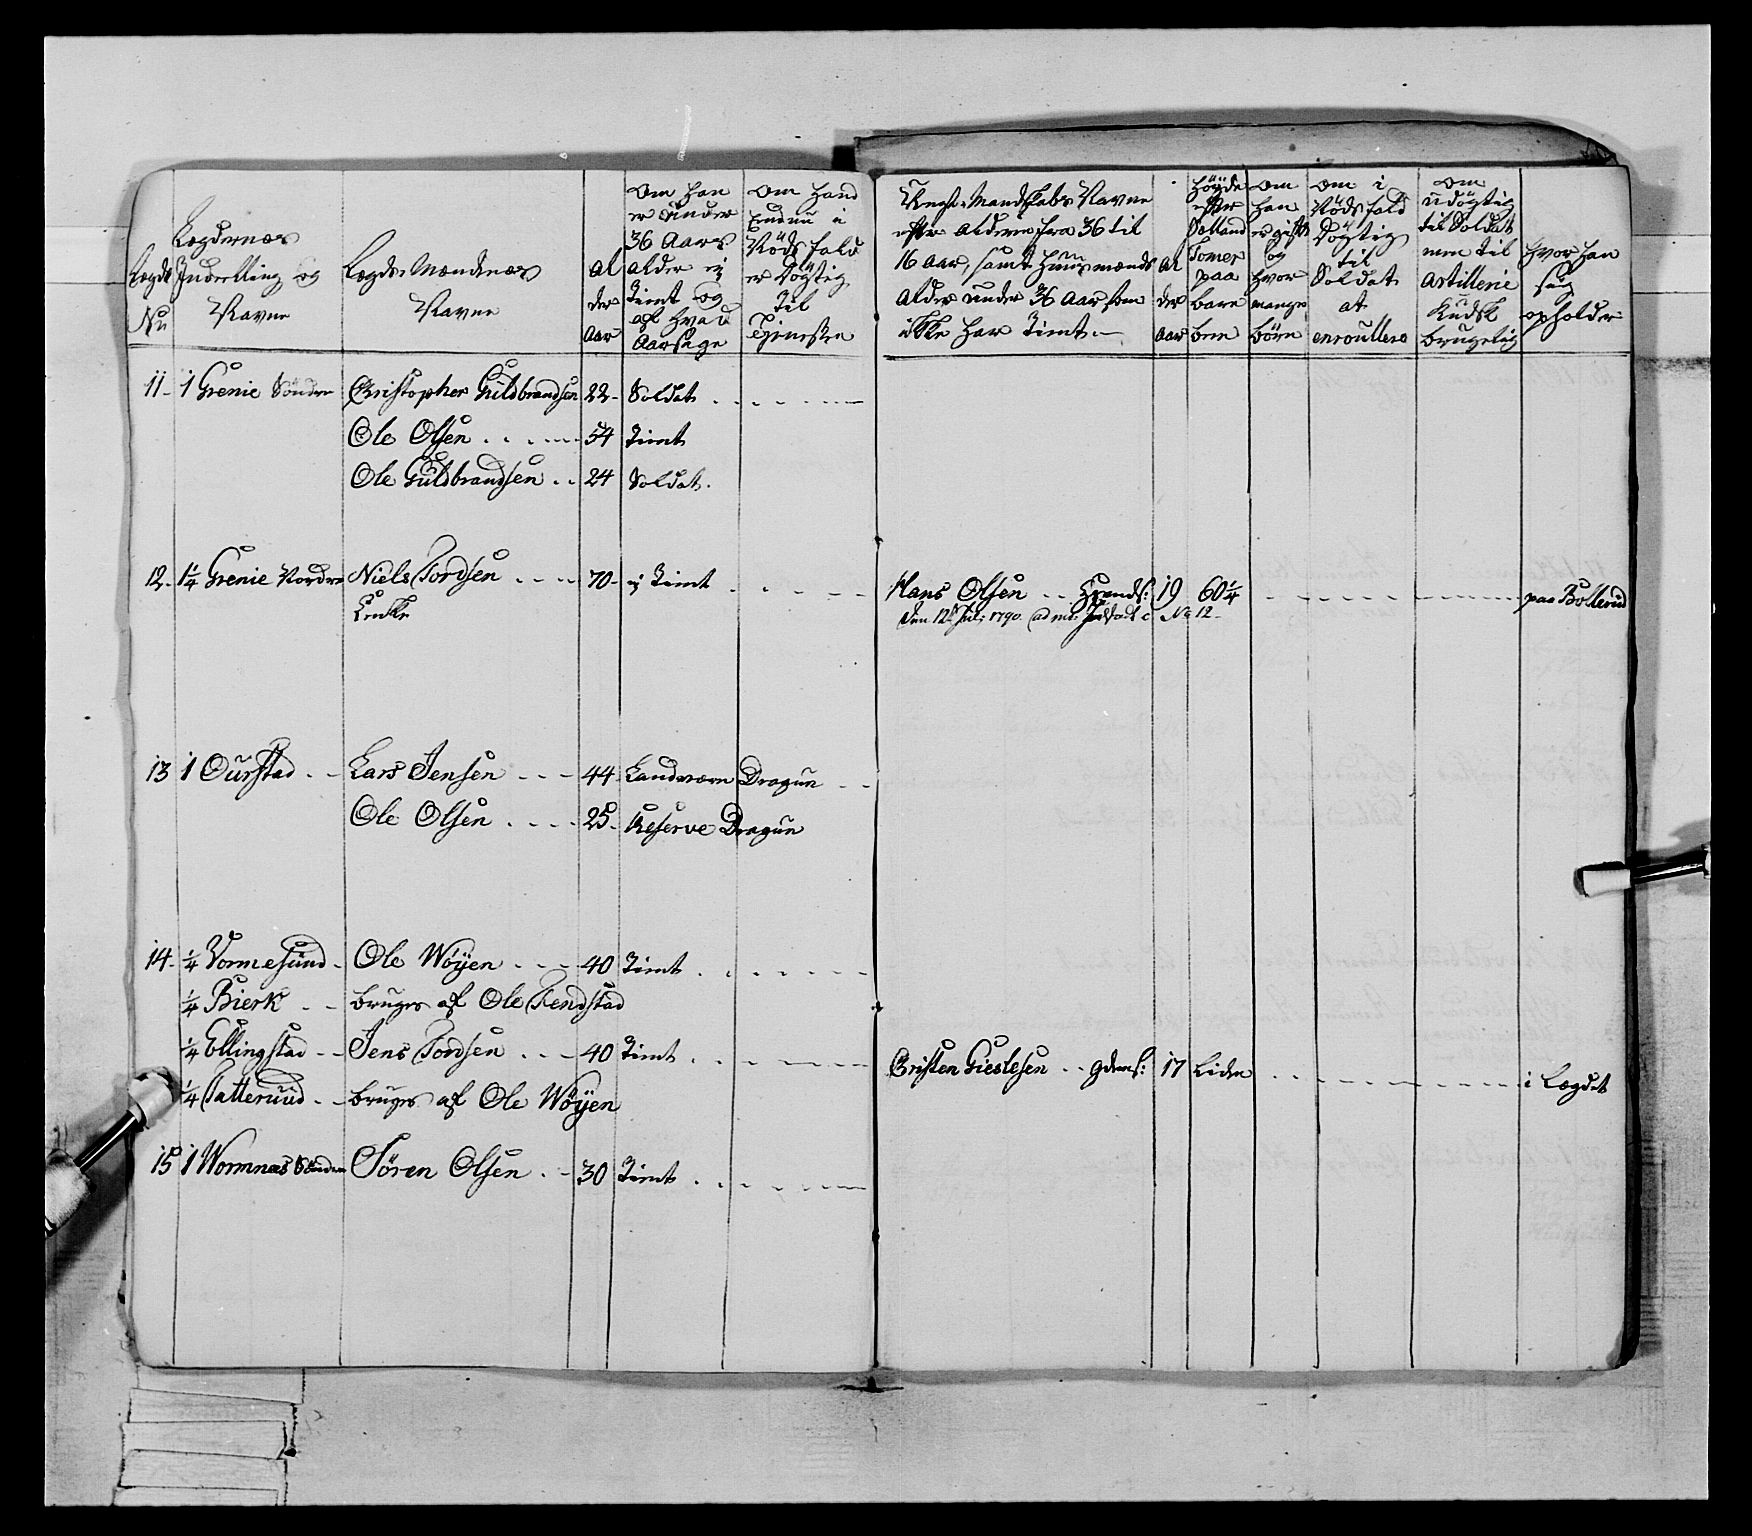 Lægdernæs
Lægde Inderelling og
No Navne
Lægds Mændenes
Navne
Al
der
aar
om han
er under
36 Aars
alder ej
tient og
af hvad
Aarsage
om hand
Endnu i
Nöds fald
er Dögtig
til
Tienesten
Mandskabs Navne
efter alderen fra 36 til
16 aar, samt huusmænds
Alder under 36 Aar som
ikke har tient
Al
der
aar
höyde
efter
Tomer
paa
bare
been
om
han
er gift
og
hvor
mange
börn
om i
Nöds fald
Dögtig
til
Soldat
at
enroullere
om
udögtig
til Soldat
men til
Artillerie
Kudsk
brugelig
hvor han
sig
opholder
11 1 Grenie Söndre Christopher Guldbrandsen 22 Soldat
Ole Olsen 54 tient
Ole Guldbrandsen 24 Soldat
12 1 1/4 Grenie Nordre Niels Tordsen 70 ej tient Hans Olsen 19 60 1/4 paa Bollerud
Enke Den 12 Juli 1790 No 12
13 1 Ourstad Lars Jensen 44 Landværn Dragun
Ole Olsen 25 Reserve Dragun
14 1/4 Vormesund Ole Wöyen 40 tient
1/4 Bierk bruges af Ole Fendstad
1/4 Ellingstad Jens Tordsen 40 tient
Cristen Gieslesen gdms: 17 liden i Lægdet
1/4 Tatteruud bruges af Ole Wöyen
15 1 Wormnæs Söndre Sören Olsen 30 tient